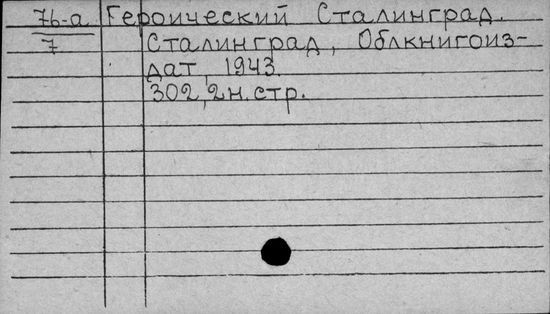 76-а Героический Сталинград.
7 Сталинград, Облкнигоиз-
дат, 1943.
302,2н.стр.